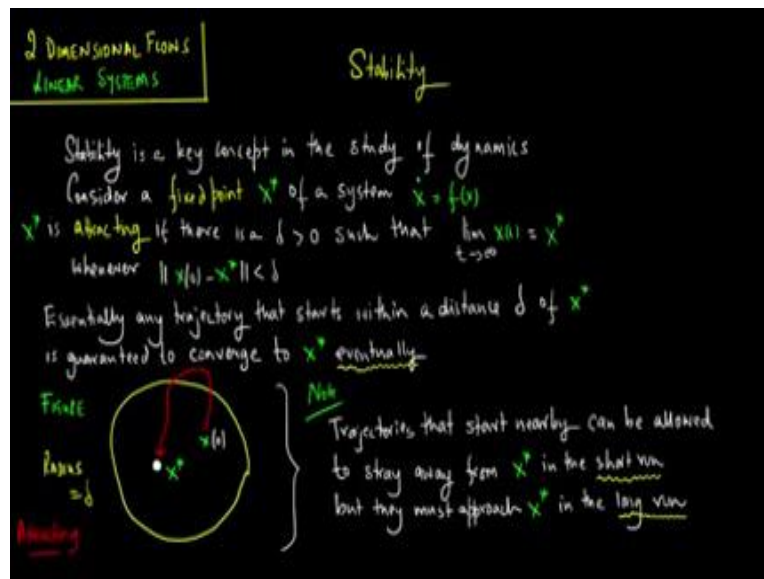 2 DIMENSIONAL FLOWS
LINEAR SYSTEMS
Stability
Stability is a key concept in the study of dynamics
Consider a fixed point X* of a system ẋ = f(x)
X* is attracting if there is a δ > 0 such that lim t→∞ x(t) = X*
whenever || x(0) - X* || < δ
Essentially any trajectory that starts within a distance δ of X*
is guaranteed to converge to X* eventually
FIGURE
RADIUS
= δ
Attracting
x(0)
X*
Note
Trajectories that start nearby can be allowed
to stray away from X* in the short run
but they must approach X* in the long run